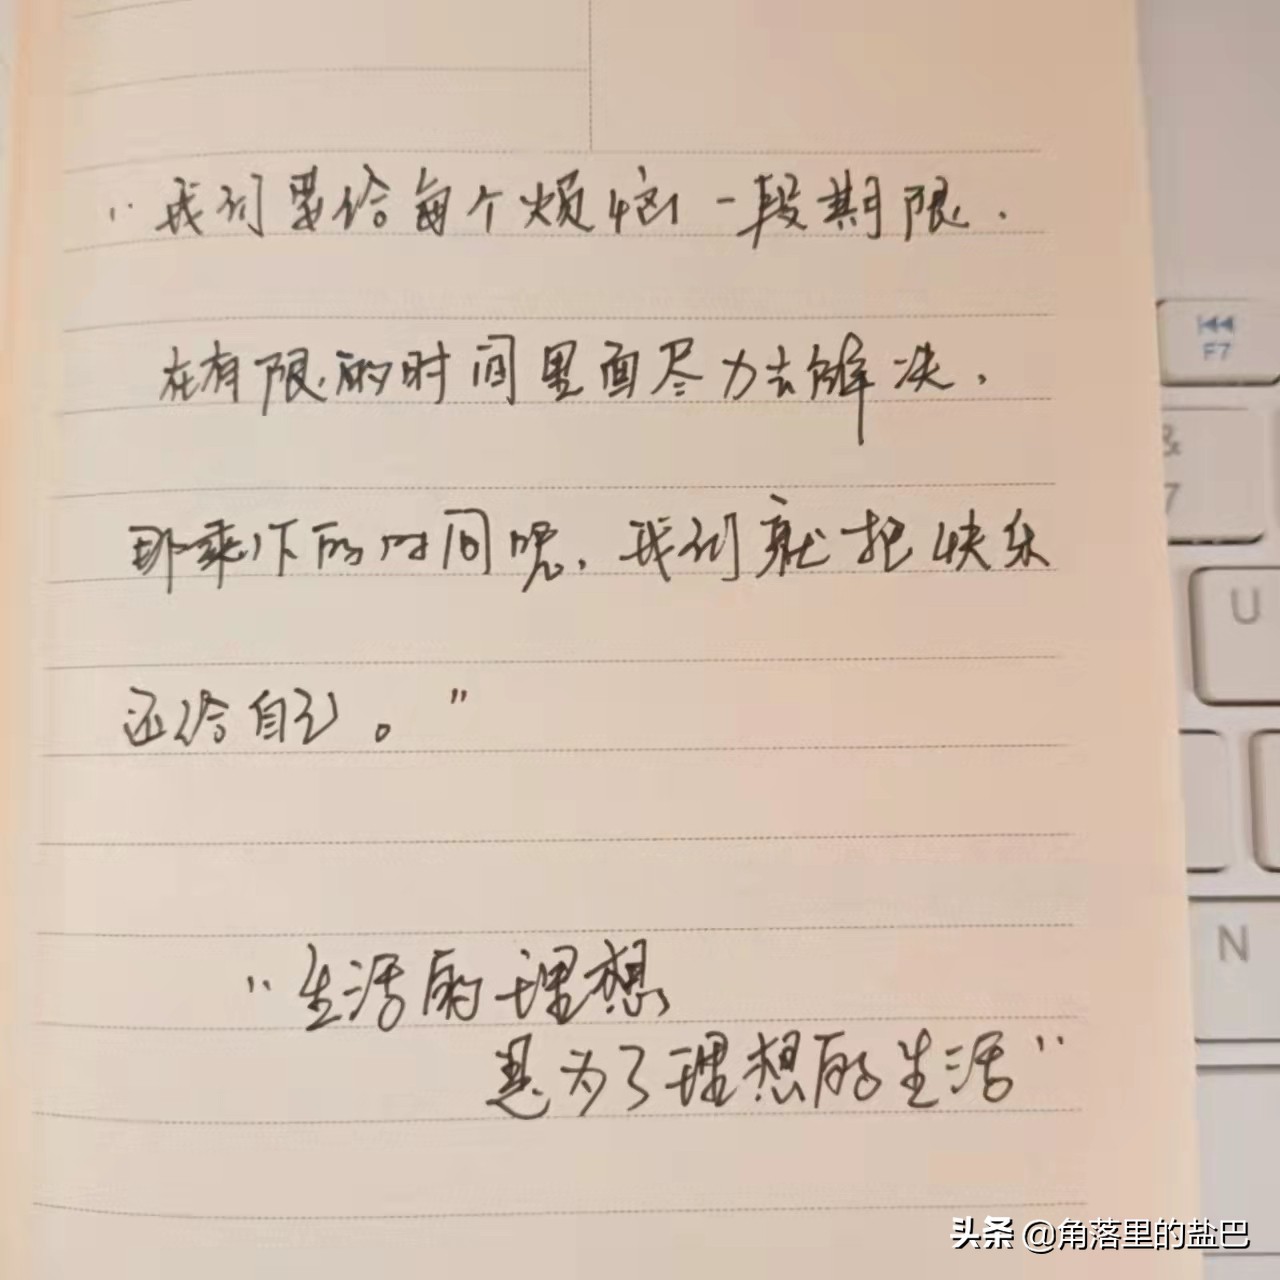 “我们要给每个烦恼一段期限.
在有限的时间里面尽力去解决,
那乘下的时间呢,我们就把快乐
还给自己。”
“生活的理想
是为了理想的生活”
F7
&
7
U
N
头条 @角落里的盐巴